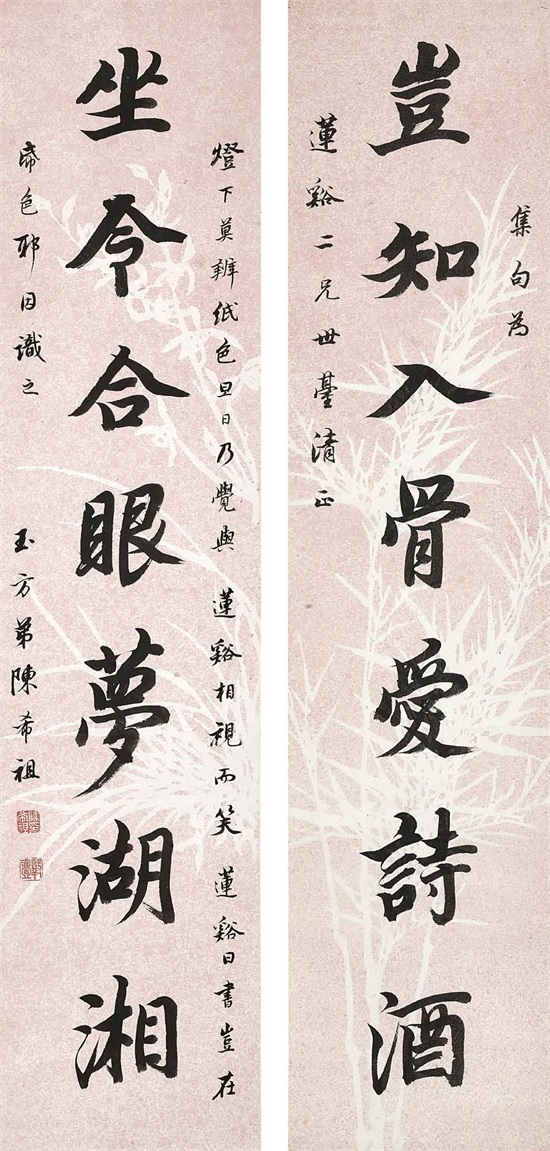 集句為
豈知入骨愛詩酒
蓮谿二兄世臺清正
燈下莫辨紙色旦日乃覺與蓮谿相視而笑蓮谿曰書豈在
坐令合眼夢湖湘
帋色耶因識之
玉方弟陳希祖